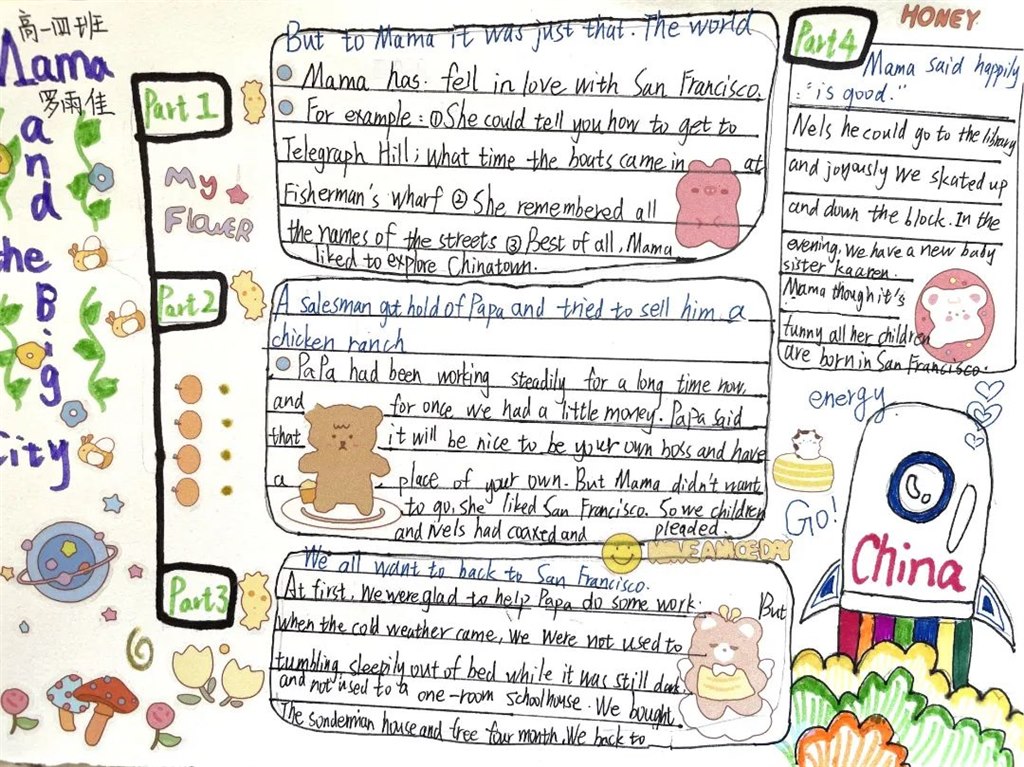 高一四班
Mama
罗雨佳
and
the
Big
City
Part 1
My
FLOWER
But to Mama it was just that. The world
Mama has. fell in love with San Francisco.
For example: ①She could tell you how to get to
Telegraph Hill; what time the boats came in at
Fisherman's wharf ②She remembered all
the names of the streets ③Best of all, Mama
liked to explore Chinatown.
Part2
A salesman got hold of Papa and tried to sell him a
chicken ranch
PaPa had been working steadily for a long time now,
and for once we had a little money. Papa said
that it will be nice to be your own boss and have
a place of your own. But Mama didn't want
to go, she liked San Francisco. So we children
and Nels had coaxed and pleaded.
HAVE A NICE DAY
Part3
We all want to back to San Francisco.
At first, We were glad to help Papa do some work. But
when the cold weather came, we were not used to
tumbling sleepily out of bed while it was still dark.
and not used to a one-room schoolhouse. We bought
The sonderman house and free four month, We back to
Part4
HONEY
Mama said happily
:"is good."
Nels he could go to the library
and joyously we skated up
and down the block. In the
evening, we have a new baby
sister kaaren.
Mama though it's
funny all her children
are born in San Francisco.
energy
Go!
China